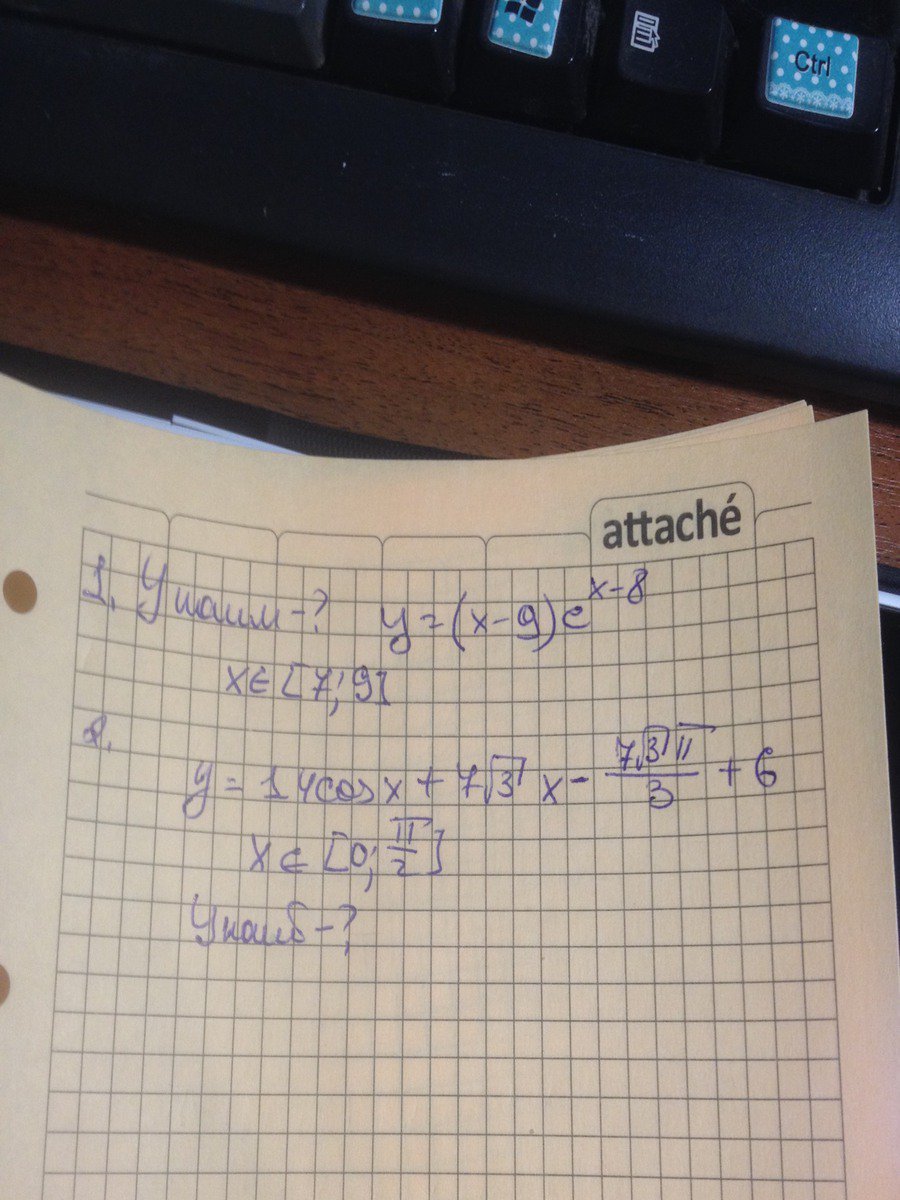 Ctrl
attaché
1. Yнаим-? y=(x-9)e^{x-8}
x∈[7;9]
2.
y=14cosx+7√3 x-\frac{7√3π}{3}+6
x∈[0;\frac{π}{2}]
Yнаиб-?